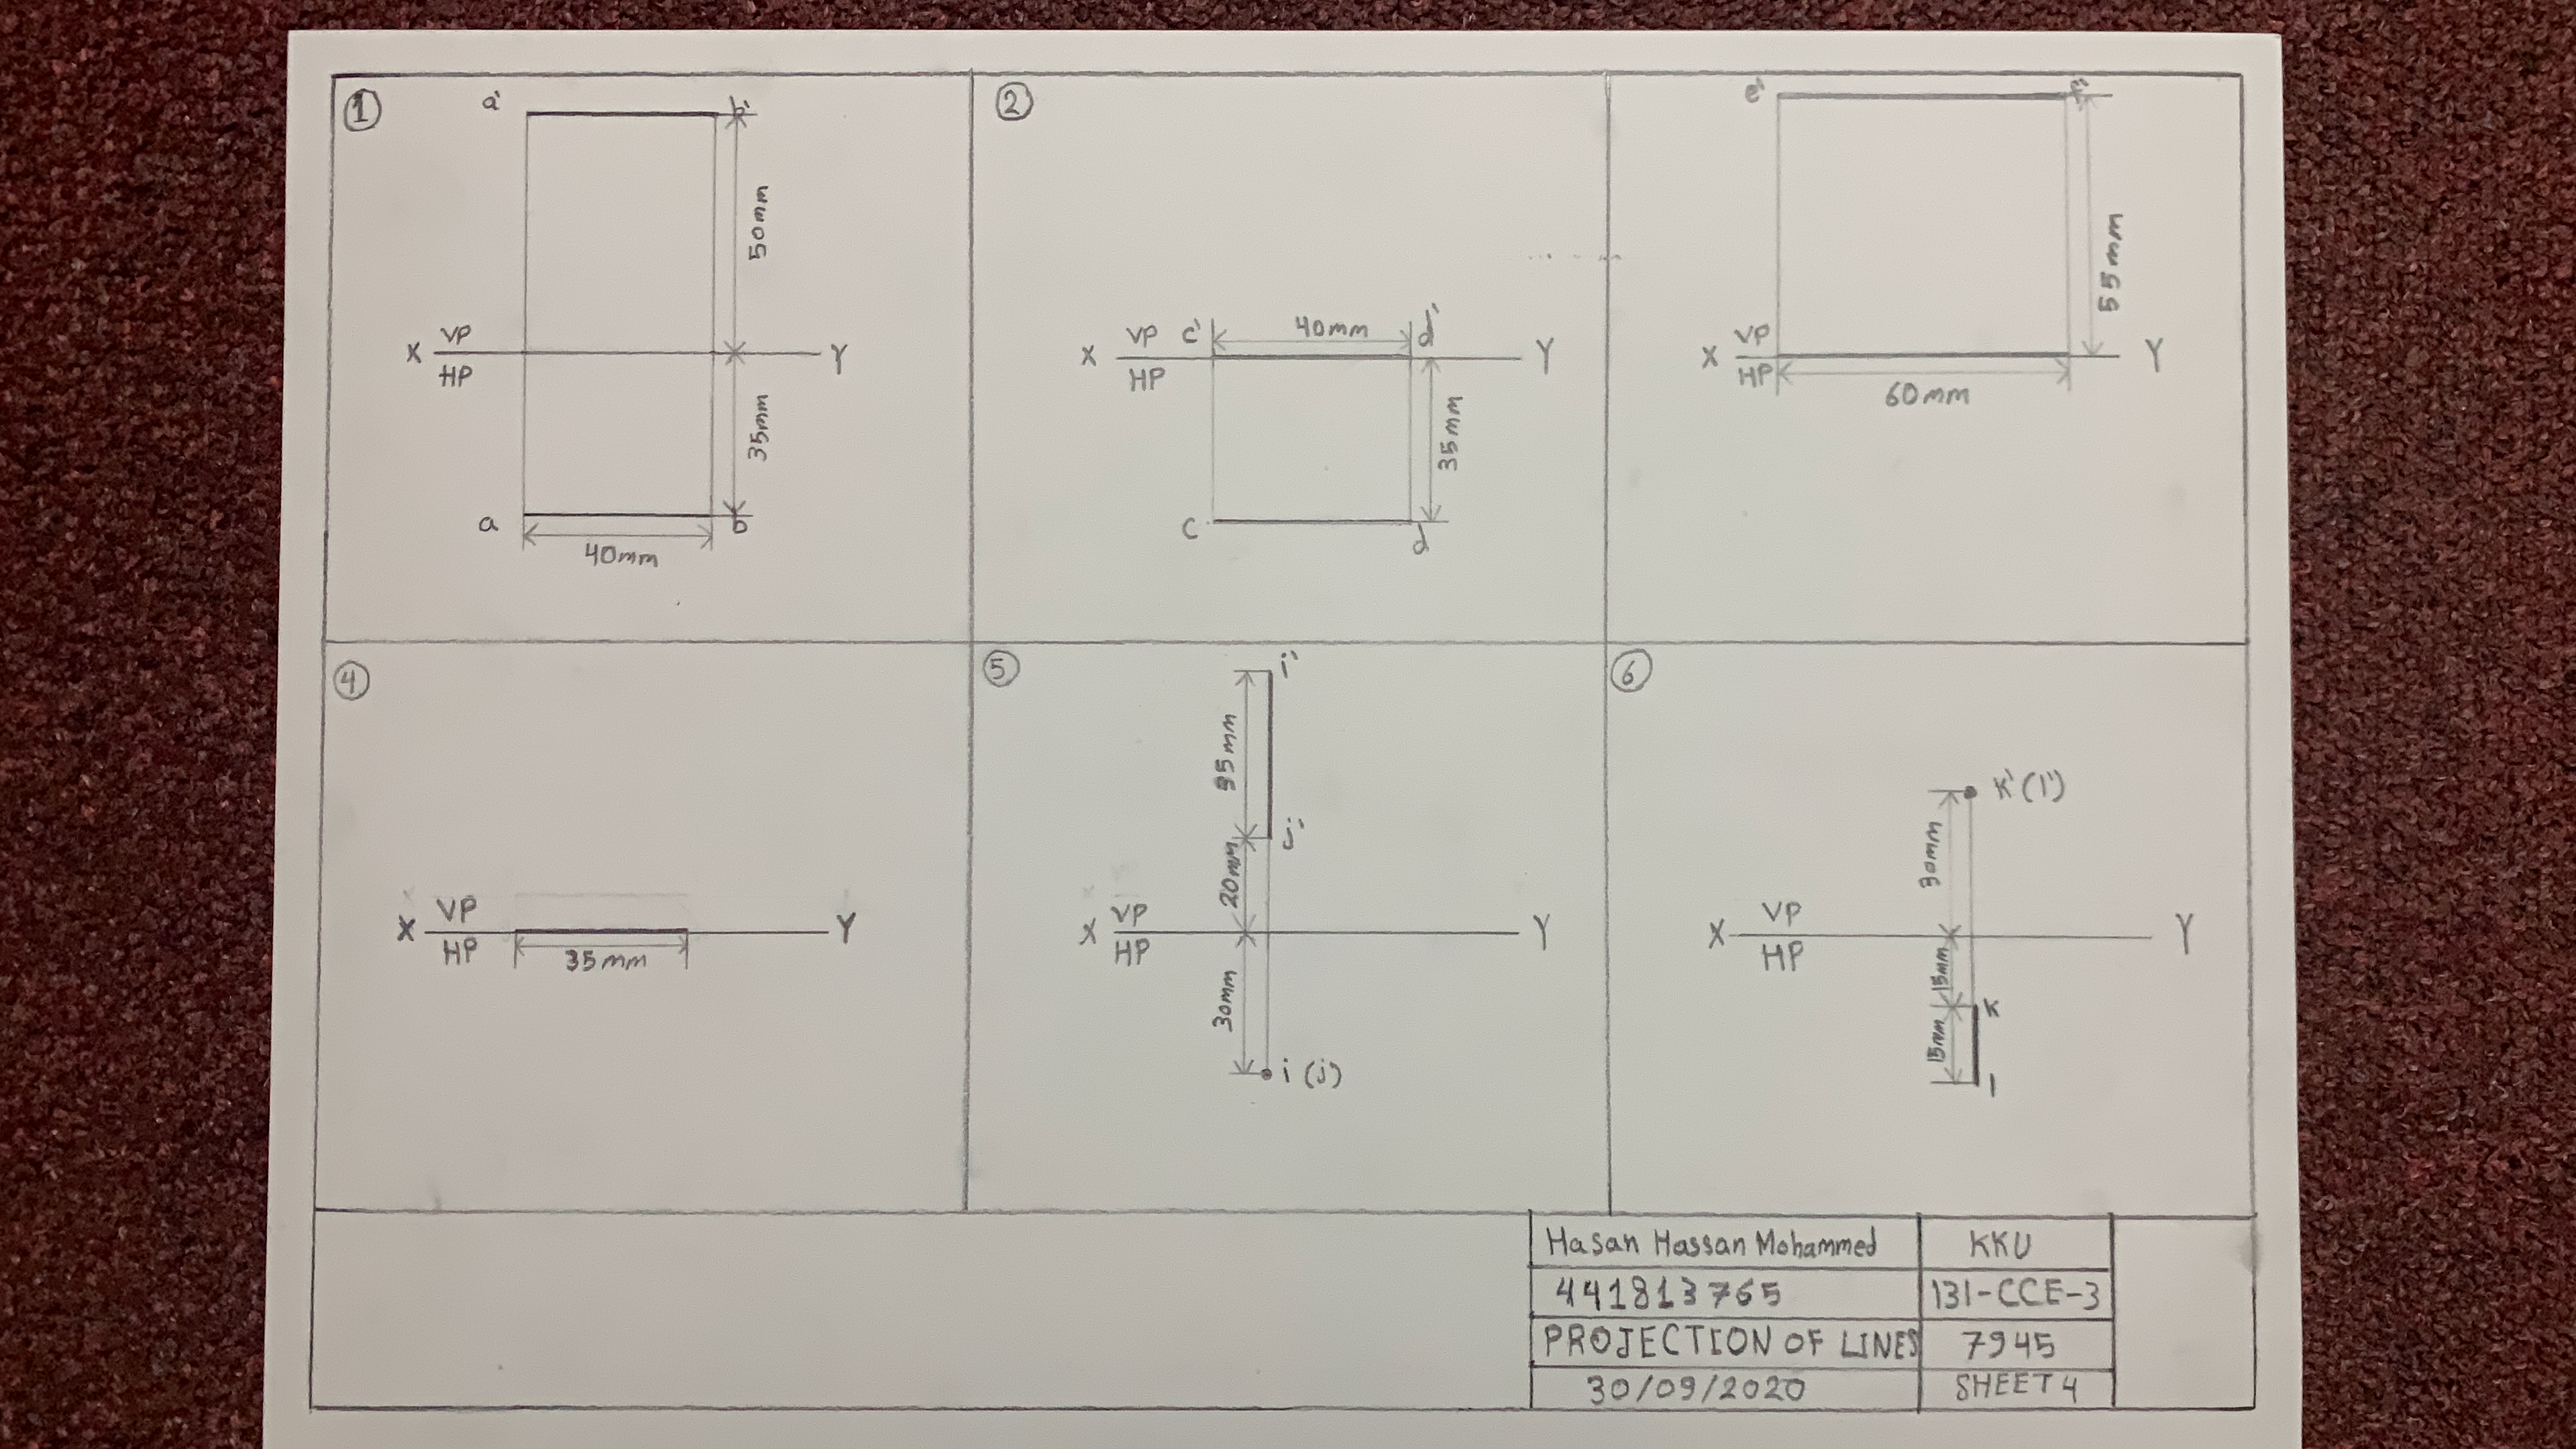 1
a' b'
50mm
X VP Y
HP
35mm
a b
40mm
2
VP c' 40mm d'
X Y
HP
35mm
c d
e' f'
55mm
VP
X Y
HP
60mm
4
VP
X Y
HP
35mm
5
i'
35mm
j'
20mm
VP
X Y
HP
30mm
i (j)
6
k' (l')
30mm
VP
X Y
HP
15mm
k
15mm
l
Hasan Hassan Mohammed KKU
441813765 131-CCE-3
PROJECTION OF LINES 7945
30/09/2020 SHEET 4